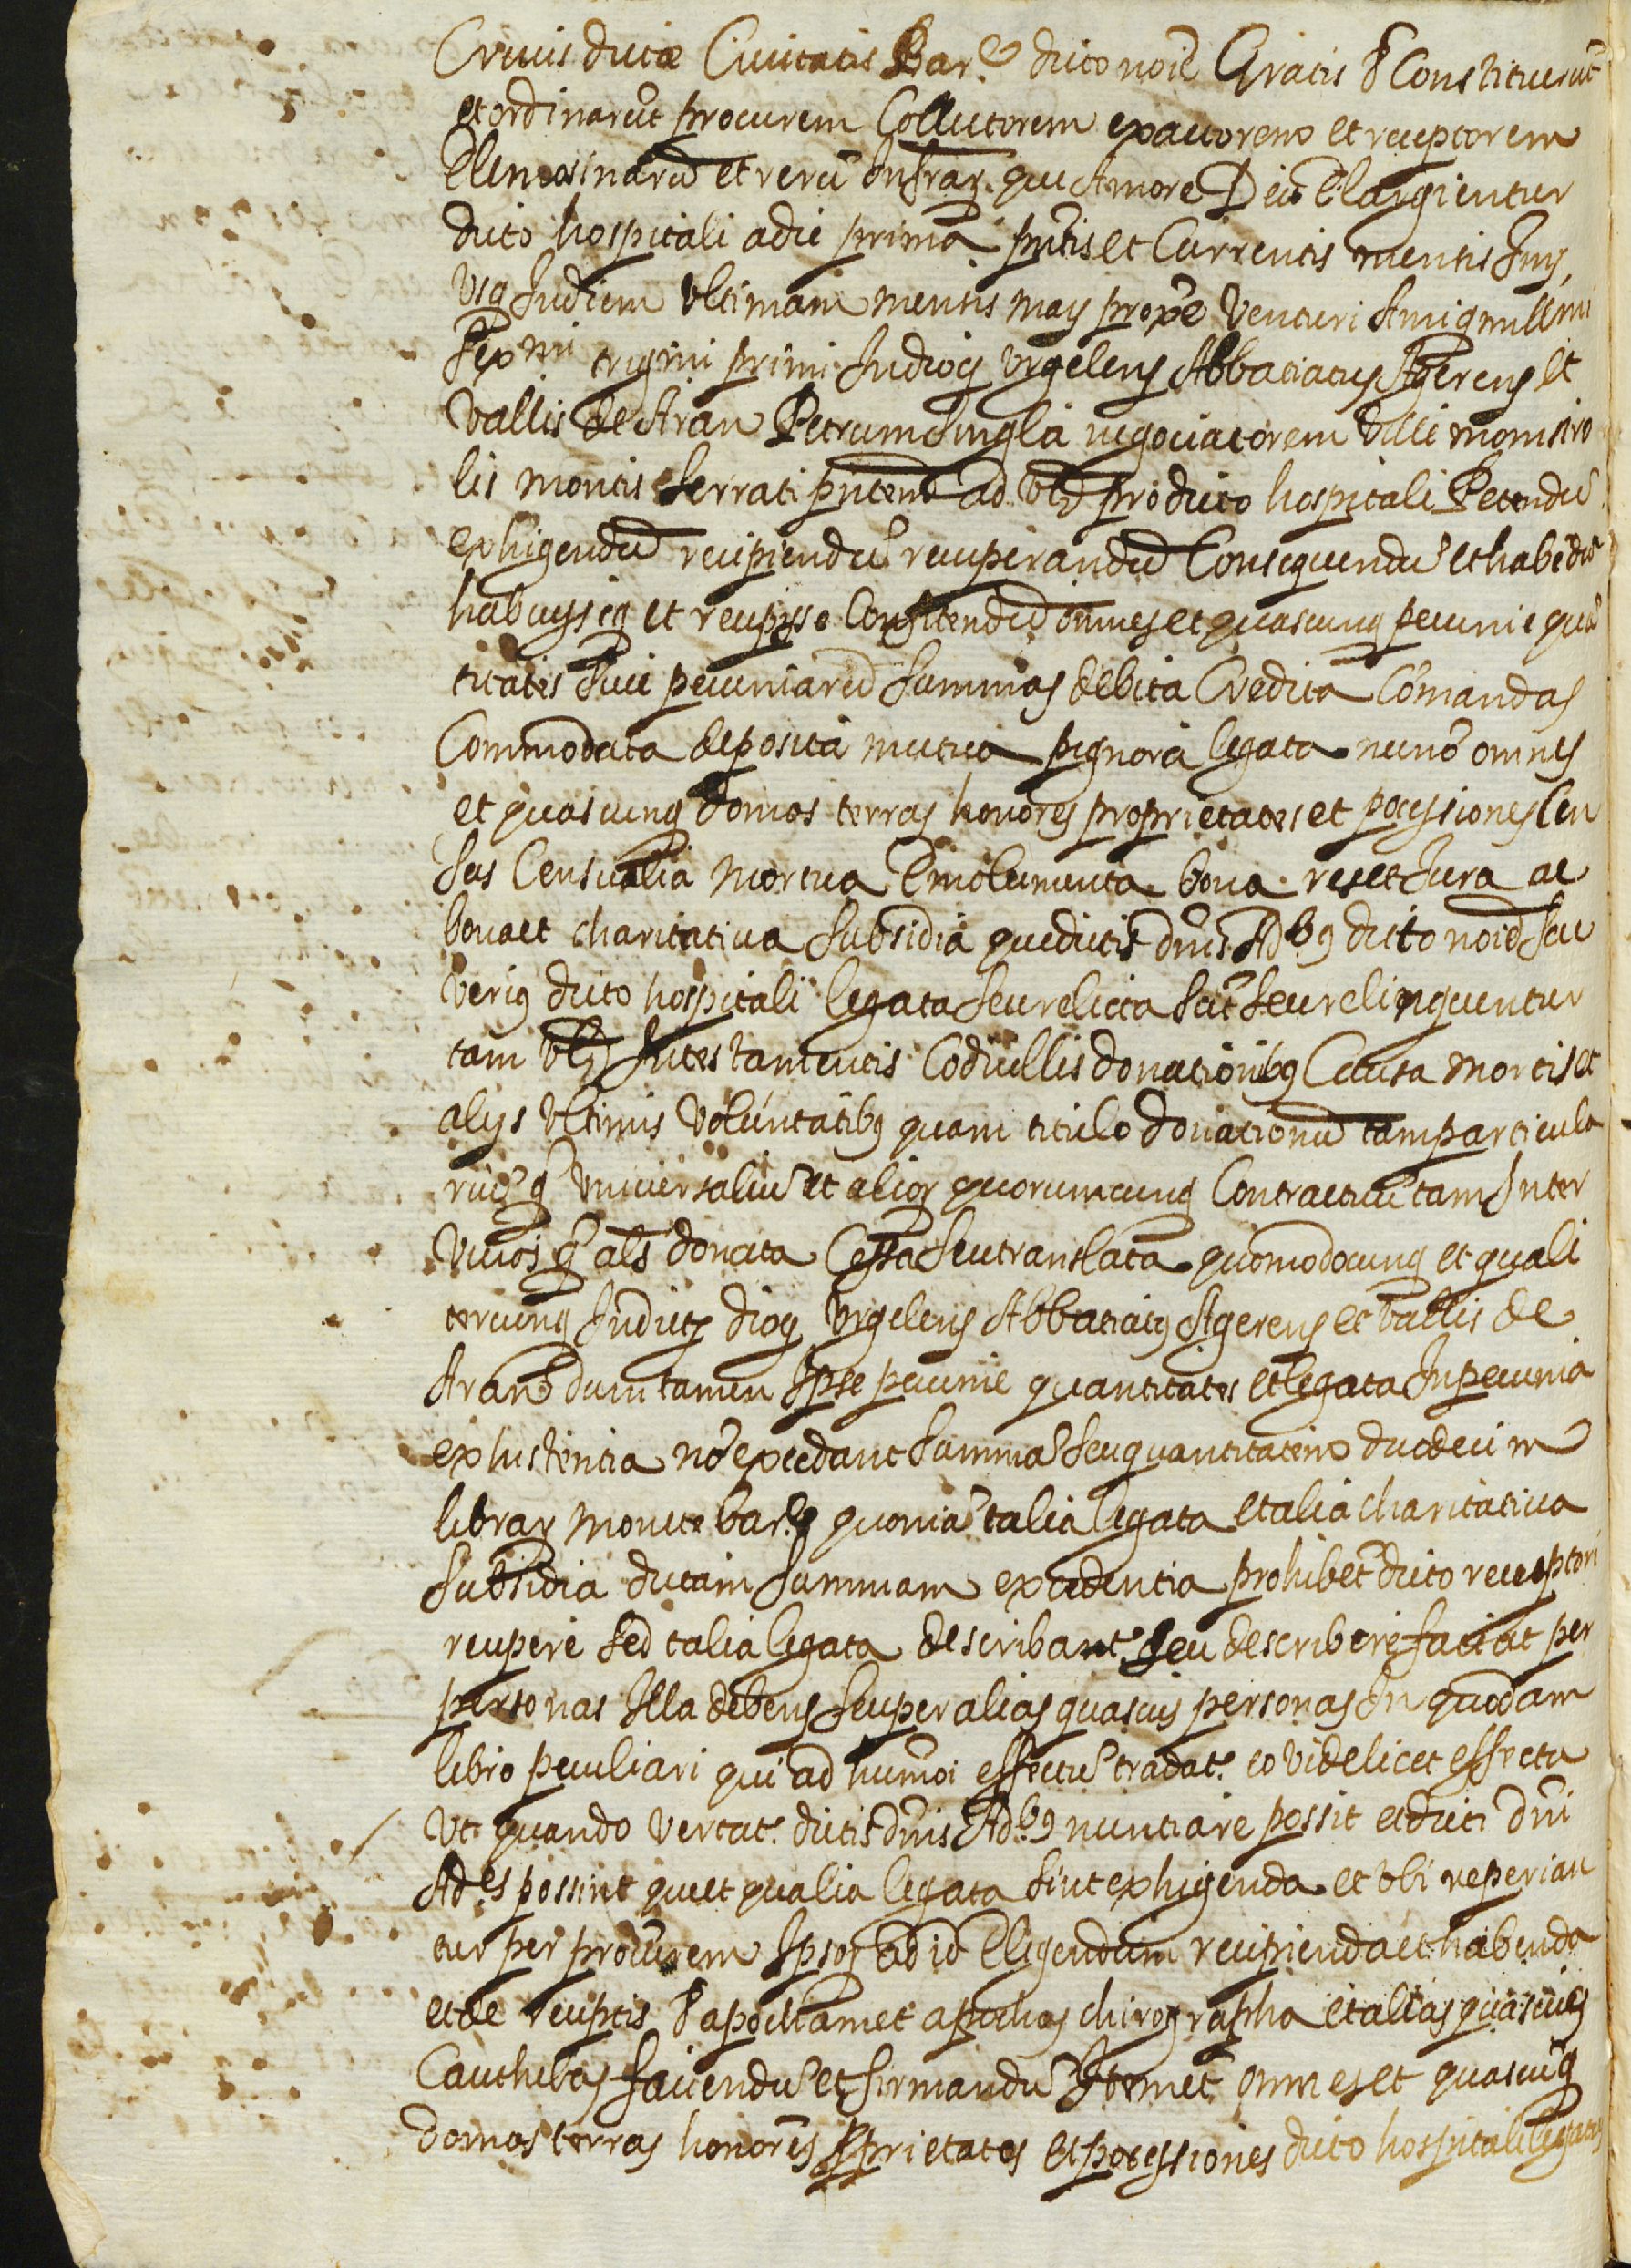 Crucis dictæ Ciuitatis Barᵉ dicto noīe Gratis &c Constituerūt
et ordinarūt procurem Collectorem exactorem et receptorem
Elemosinarū et rerū infrar. que Amore Dei Elargientur
dicto hospitali a die prima pn̄tis et Currentis mensis Juny
Usq In diem Ultimam mensis may proxē Venturi Anni millmi
Sexmi trigmi primi In dioc̨ Urgelens̨ Abbatiatus Agerens̨ et
Vallis de Aran Petrum Singla negociatorem Ville monistro
lis montis Serrati pn̄tem ad Vtz pro dicto hospitali Petendū
exhigendū recipiendū recuperandū Consequendū et habēdū
habuyseq et recepysse Confitendū omnes et quascunq pecunie quā
titates siue pecuniarū summas debita Credita Comandas
Commodata deposita mutua pignora legata necnō omnes
et quascunq domos terras honores proprietates et pocessiones Cen
sus Censualia mortua Emolumenta bona res et Jura ac
bona et charitatiua Subsidia que dictis dn̄is Adbꝰ dicto noīe Seu
Verius dicto hospitali legata Seu relicta Sūt Seu relinquentur
tam Vtz In testamentis Codicillis donationibꝰ Causa mortis et
alys Ultimis Voluntatibꝰ quam titulo donationū tam particula
riū q̄ Vniuersaliū et alior quorumcunq Contractuū tam Inter
Viuos q̄ als̄ donata Cessa Seu translata quomodocunq et quali
tercunq In dictis dioc̨ Urgelens̨ Abbatiatꝰ Agerens̨ et Vallis de
Aran dum tamen Ipse pecunie quantitates et legata In pecunia
exhistentia nō excedant Summā Seu quantitatem duodecim
librar monete barᵉ quoniā talia legata et alia charitatiua
Subsidia dictam Summam excedentia prohibet̄ dicto receptori
recipere Sed talia legata describant Seu describere faciat per
personas Illa debens̨ Seu per alias quasuis personas In quodam
libro peculiari qui ad hum̄oi effectū tradat. eo videlicet effectu
Vt quando Vertat. dictis dn̄is Adbꝰ nuntiare possit et dicti dn̄i
Ades possint que et qualia legata Sint exhigenda et Vbi reperian
tur per procurem Ipsor ad id Eligendum recipienda et habenda
et de receptis &c apocham et apochas chirographa et alias quasuis
Cauthelas faciendū et firmandū Item et omnes et quascūq
domos terras honores pprietates et pocessiones dicto hospitali legatas